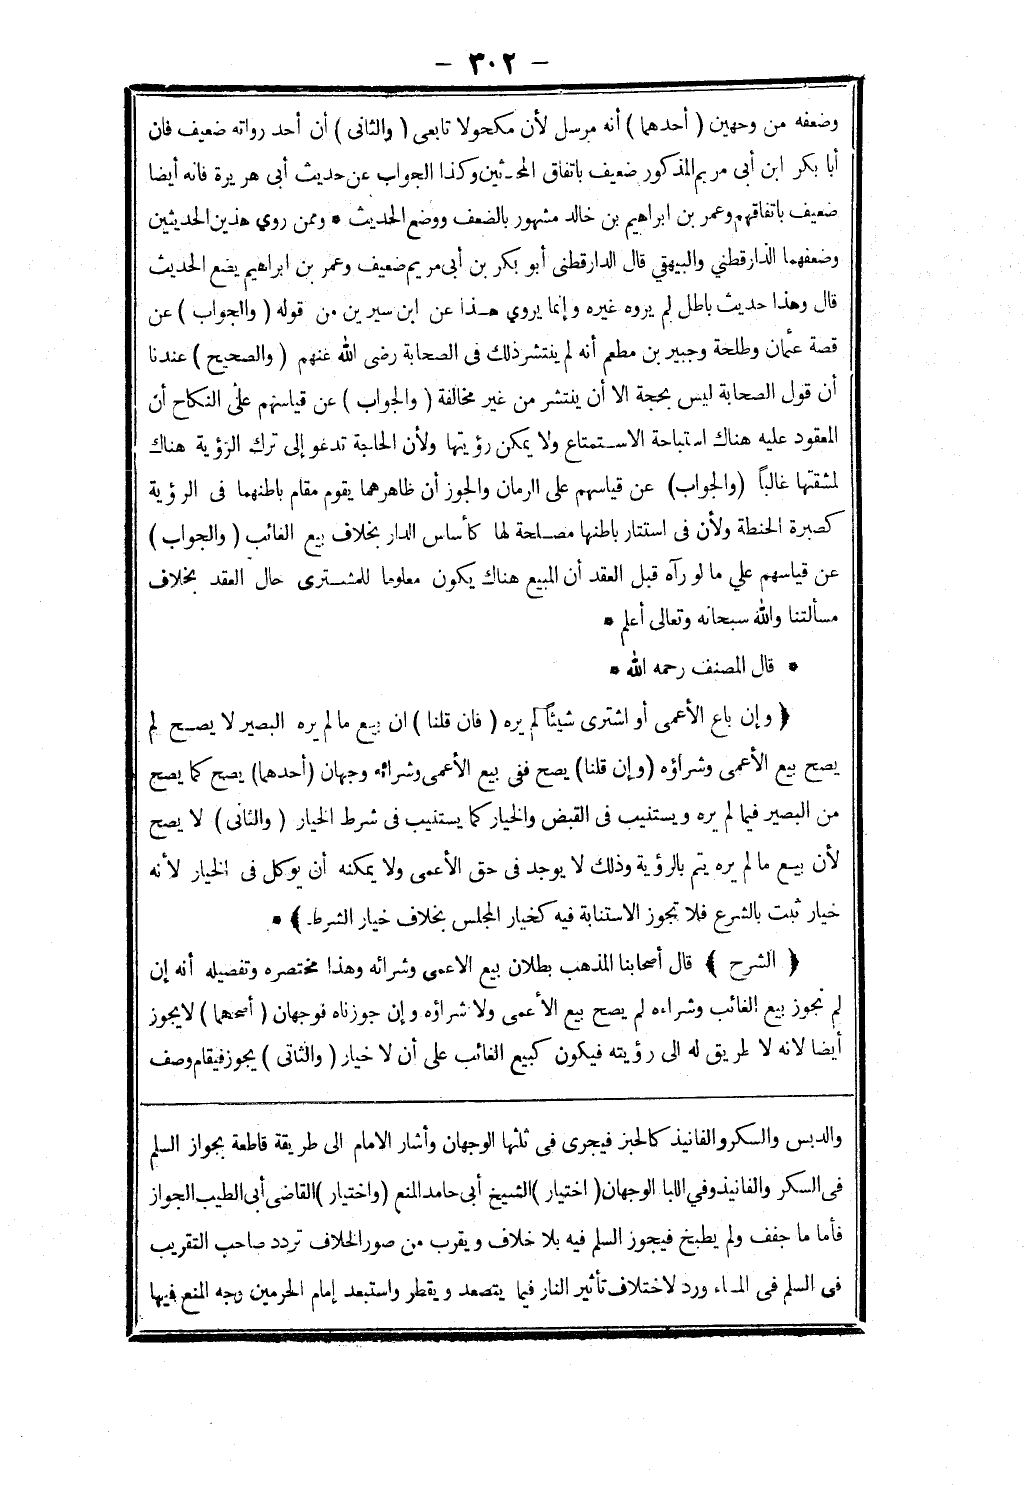 - ٣٠٢ -
وضعفه من وجهين ( أحدهما ) أنه مرسل لأن مكحولا تابعى ( والثانى ) أن أحد رواته ضعيف فان
أبا بكر ابن أبى مريم المذكور ضعيف باتفاق المحدثين وكذا الجواب عن حديث أبى هريرة فانه أيضا
ضعيف باتفاقهم وعمر بن ابراهيم بن خالد مشهور بالضعف ووضع الحديث * وممن روي هذين الحديثين
وضعفهما الدارقطني والبيهقي قال الدارقطنى أبو بكر بن أبى مريم ضعيف وعمر بن ابراهيم يضع الحديث
قال وهذا حديث باطل لم يروه غيره وإنما يروي هـذا عن ابن سيرين من قوله ( والجواب ) عن
قصة عثمان وطلحة وجبير بن مطعم أنه لم ينتشر ذلك فى الصحابة رضى الله عنهم ( والصحيح ) عندنا
أن قول الصحابة ليس بحجة الا أن ينتشر من غير مخالفة ( والجواب ) عن قياسهم على النكاح أن
المعقود عليه هناك استباحة الاستمتاع ولا يمكن رؤيتها ولأن الحاجة تدعو إلى ترك الرؤية هناك
لمشقتها غالباً (والجواب) عن قياسهم على الرمان والجوز أن ظاهرهما يقوم مقام باطنهما فى الرؤية
كصبرة الحنطة ولأن فى استتار باطنها مصـلحة لها كأساس الدار بخلاف بيع الغائب ( والجواب )
عن قياسهم علي ما لو رآه قبل العقد أن المبيع هناك يكون معلوما للمشـترى حال العقد بخلاف
مسألتنا والله سبحانه وتعالى أعلم *
* قال المصنف رحمه الله *
﴿ وإن باع الأعمى أو اشترى شيئاً لم يره ( فان قلنا ) ان بيع ما لم يره البصير لا يصـح لم
يصح بيع الأعمى وشراؤه (وإن قلنا) يصح ففى بيع الأعمى وشرائه وجهان (أحدهما) يصح كما يصح
من البصير فيما لم يره ويستنيب فى القبض والخيار كما يستنيب فى شرط الخيار ( والثانى ) لا يصح
لأن بيـع ما لم يره يتم بالرؤية وذلك لا يوجد فى حق الأعمى ولا يمكنه أن يوكل فى الخيار لأنه
خيار ثبت بالشرع فلا تجوز الاستنابة فيه كخيار المجلس بخلاف خيار الشرط. ﴾ *
﴿ الشرح ﴾ قال أصحابنا المذهب بطلان بيع الاعمى وشرائه وهذا مختصره وتفصيله أنه إن
لم نجوز بيع الغائب وشراءه لم يصح بيع الأعمى ولا شراؤه وإن جوزناه فوجهان ( أصحهما ) لا يجوز
أيضا لانه لا طريق له الى رؤيته فيكون كبيع الغائب على أن لا خيار ( والثانى ) يجوز فيقام وصف
والدبس والسكر والفانيذ كالخبز فيجرى فى ثلثها الوجهان وأشار الامام الى طريقة قاطعة بجواز السلم
فى السكر والفانيذ وفي اللبا الوجهان ( اختيار ) الشيخ أبى حامد المنع (واختيار ) القاضى أبى الطيب الجواز
فأما ما جفف ولم يطبخ فيجوز السلم فيه بلا خلاف ويقرب من صور الخلاف تردد صاحب التقريب
فى السلم فى المـاء ورد لاختلاف تأثير النار فيما يتصعد ويقطر واستبعد إمام الحرمين وجه المنع فيها